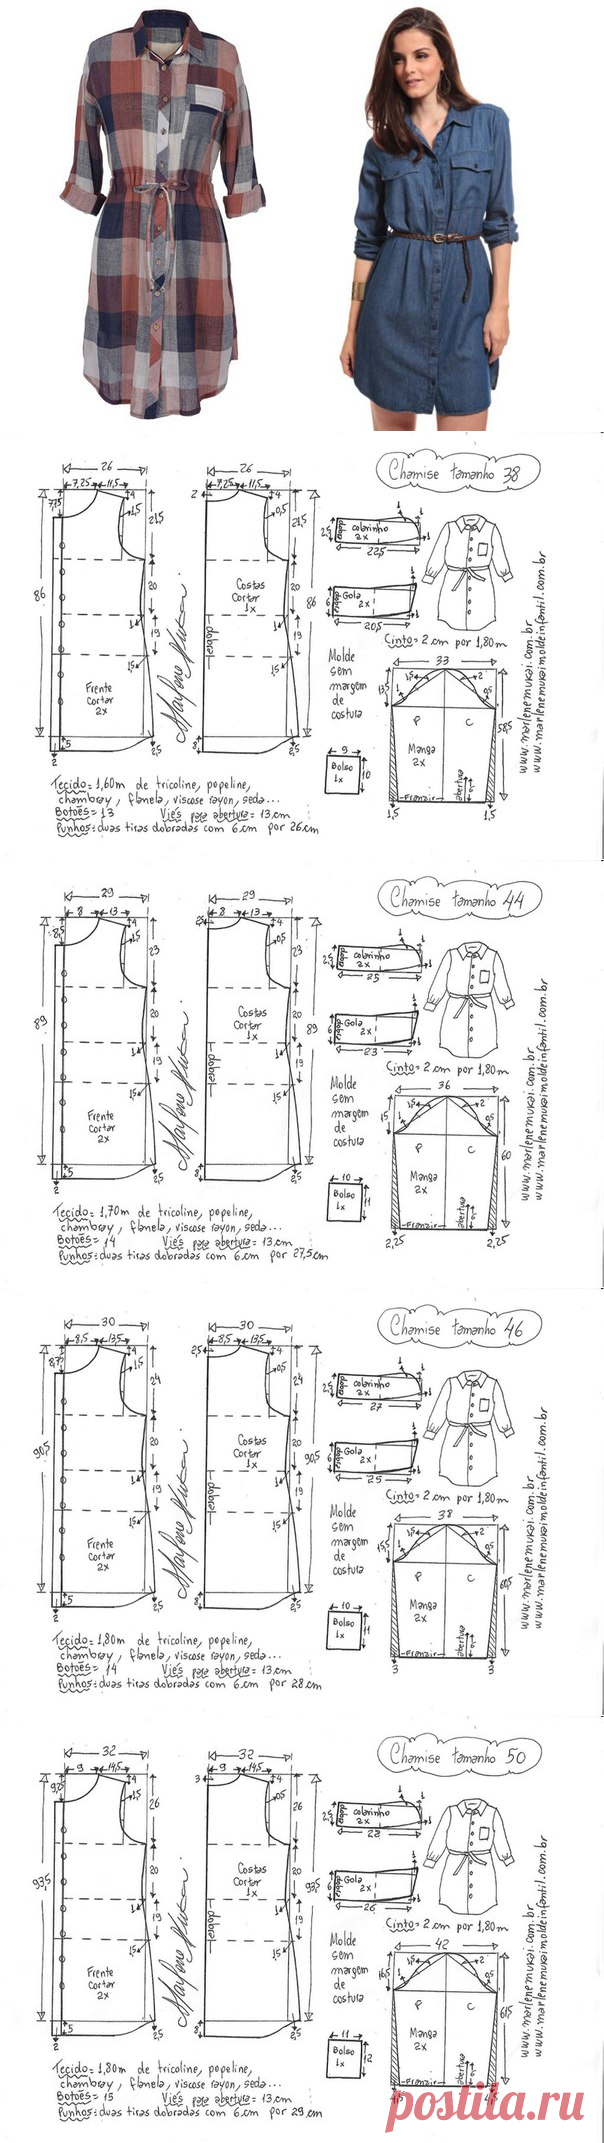 Chamise tamanho 38
26
7,25 11,5
4
7,75
1,5
21,5
86
20
1
19
1,5
Frente
Cortar
2x
5
2
2,5
26
7,25 11,5
2
4
0,5
21,5
Costas
Cortar
1x
20
86
dobra
1
19
1,5
8
2,5
Marlene Mukai
2,5
dobra
colarinho
2x
1
1
22,5
6
dobra
Gola
2x
1
20,5
Cinto = 2 cm por 1,80m
Molde
sem
margem
de
costura
9
Bolso
1x
10
33
13,5
1
1,5
2
0,5
P C
Manga
2x
58,5
Franzir
abertura
1,5 1,5
www.marlenemukai.com.br
www.marlenemukaimoldeinfantil.com.br
Tecido = 1,60m de tricoline, popeline,
chambray, flanela, viscose rayon, seda...
Botões = 13 Viés para abertura = 13 cm
Punhos = duas tiras dobradas com 6 cm por 26 cm
Chamise tamanho 44
29
8 13
4
8,5
1,5
23
89
20
1
19
1,5
Frente
Cortar
2x
5
2
2,5
29
8 13
2,5
4
0,5
23
Costas
Cortar
1x
20
89
dobra
1
19
1,5
8
2,5
Marlene Mukai
2,5
dobra
colarinho
2x
1
1
25
6
dobra
Gola
2x
1
23
Cinto = 2 cm por 1,80m
Molde
sem
margem
de
costura
10
Bolso
1x
11
36
15
1
1,5
2
0,5
P C
Manga
2x
60
Franzir
abertura
2,25 2,25
www.marlenemukai.com.br
www.marlenemukaimoldeinfantil.com.br
Tecido = 1,70m de tricoline, popeline,
chambray, flanela, viscose rayon, seda...
Botões = 14 Viés para abertura = 13 cm
Punhos = duas tiras dobradas com 6 cm por 27,5 cm
Chamise tamanho 46
30
8,5 13,5
4
8,75
1,5
24
90,5
20
1
19
1,5
Frente
Cortar
2x
5
2
2,5
30
8,5 13,5
2,5
4
0,5
24
Costas
Cortar
1x
20
90,5
dobra
1
19
1,5
8
2,5
Marlene Mukai
2,5
dobra
colarinho
2x
1
1
27
6
dobra
Gola
2x
1
25
Cinto = 2 cm por 1,80m
Molde
sem
margem
de
costura
10
Bolso
1x
11
38
15,5
1
1,5
2
0,5
P C
Manga
2x
60,5
Franzir
abertura
3 3
www.marlenemukai.com.br
www.marlenemukaimoldeinfantil.com.br
Tecido = 1,80m de tricoline, popeline,
chambray, flanela, viscose rayon, seda...
Botões = 14 Viés para abertura = 13 cm
Punhos = duas tiras dobradas com 6 cm por 28 cm
Chamise tamanho 50
32
9 14,5
4
1,5
26
93,5
20
1
19
1,5
Frente
Cortar
2x
5
2
2,5
32
9 14,5
3
4
0,5
26
Costas
Cortar
1x
20
93,5
dobra
1
19
1,5
8
2,5
Marlene Mukai
2,5
dobra
colarinho
2x
1
1
28
6
dobra
Gola
2x
1
26
Cinto = 2 cm por 1,80m
Molde
sem
margem
de
costura
11
Bolso
1x
12
42
16,5
1
1,5
2
0,5
P C
Manga
2x
61,5
abertura
4,5 4,5
www.marlenemukai.com.br
www.marlenemukaimoldeinfantil.com.br
Tecido = 1,80m de tricoline, popeline,
chambray, flanela, viscose rayon, seda...
Botões = 15 Viés para abertura = 13 cm
Punhos = duas tiras dobradas com 6 cm por 29 cm
postila.ru